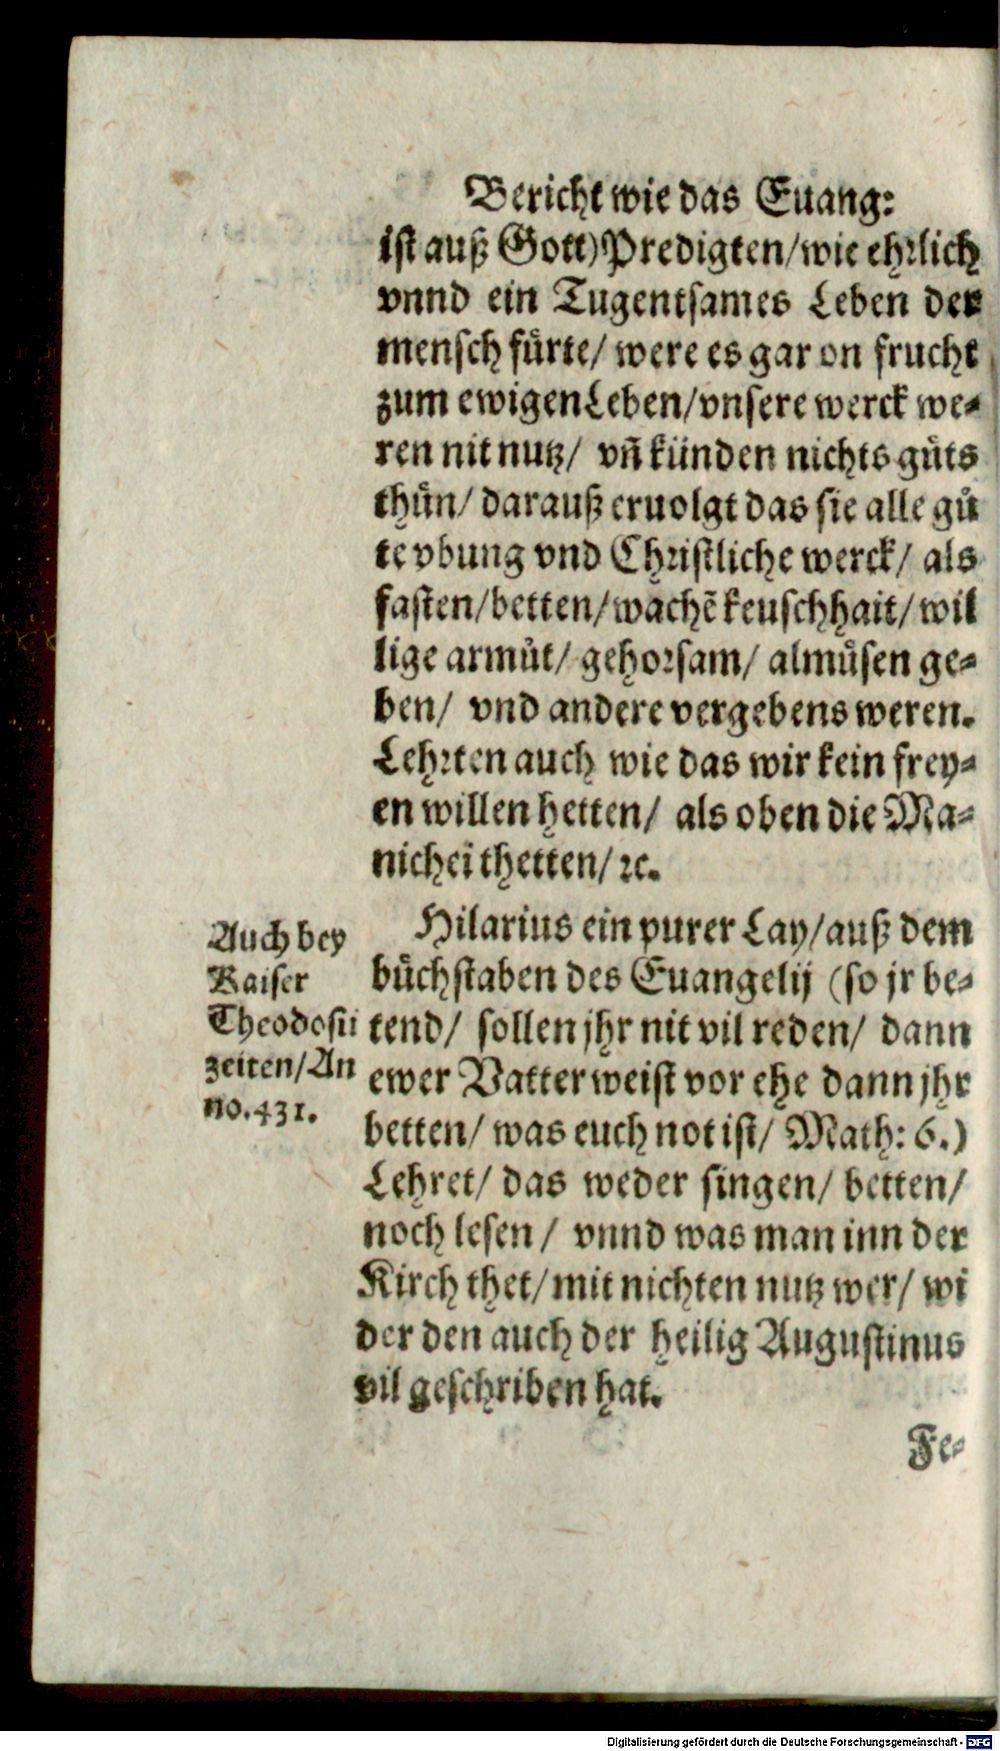 Bericht wie das Euang:
ist auß Gott) Predigten/ wie ehrlich
vnnd ein Tugentsames Leben der
mensch fürte/ were es gar on frucht
zum ewigen Leben/ vnsere werck we⸗
ren nit nutz/ vñ künden nichts gůts
thůn/ darauß eruolgt das sie alle gů
te vbung vnd Christliche werck/ als
fasten/ betten/ wachẽ keuschhait/ wil
lige armůt/ gehorsam/ almůsen ge⸗
ben/ vnd andere vergebens weren.
Lehrten auch wie das wir kein frey⸗
en willen hetten/ als oben die Ma⸗
nichei thetten/ ꝛc.
Auch bey
Kaiser
Theodosii
zeiten/ An
no. 431.
Hilarius ein purer Lay/ auß dem
bůchstaben des Euangelij (so jr be⸗
tend/ sollen jhr nit vil reden/ dann
ewer Vatter weist vor ehe dann jhr
betten/ was euch not ist/ Math: 6.)
Lehret/ das weder singen/ betten/
noch lesen/ vnnd was man inn der
Kirch thet/ mit nichten nutz wer/ wi
der den auch der heilig Augustinus
vil geschriben hat.
Fe⸗
Digitalisierung gefördert durch die Deutsche Forschungsgemeinschaft - DFG